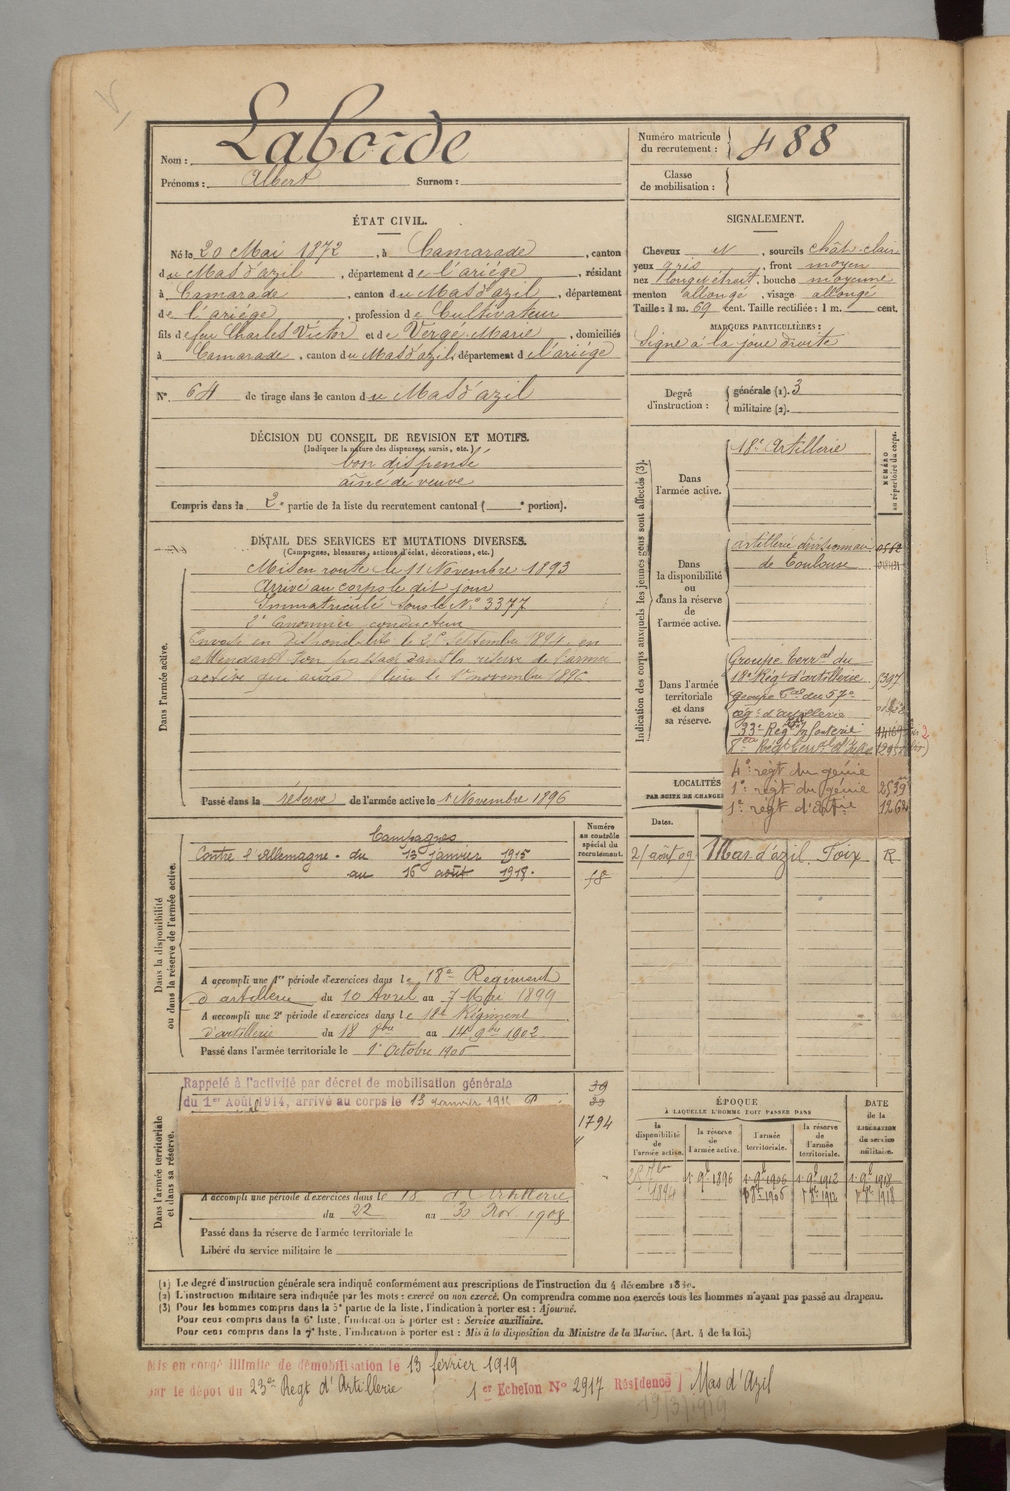 Nom : Laborde
Prénoms : Albert Surnom :
Numéro matricule du recrutement : 488
Classe de mobilisation :
ÉTAT CIVIL.
Né le 20 Mai 1872, à Camarade, canton
du Mas d'azil, département de l'ariége, résidant
à Camarade, canton du Mas d'azil, département
de l'ariége, profession de Cultivateur
fils de feu Charles Victor et de Vergé Marie, domiciliés
à Camarade, canton du Mas d'azil, département de l'ariége
N° 64 de tirage dans le canton du Mas d'azil
SIGNALEMENT.
Cheveux N, sourcils chât-clair
yeux gris, front moyen
nez long étroit, bouche moyenne
menton allongé, visage allongé
Taille : 1 m. 69 cent. Taille rectifiée : 1 m. cent.
MARQUES PARTICULIÈRES :
Signe à la joue droite
Degré d'instruction : générale (1). 3
militaire (2).
DÉCISION DU CONSEIL DE REVISION ET MOTIFS.
(Indiquer la nature des dispenses, sursis, etc.)
bon dispensé
aîné de veuve
Compris dans la 2e partie de la liste du recrutement cantonal ( e portion).
DÉTAIL DES SERVICES ET MUTATIONS DIVERSES.
(Campagnes, blessures, actions d'éclat, décorations, etc.)
Dans l'armée active.
Mis en route le 11 Novembre 1893
Arrivé au corps le dit jour
Immatriculé sous le N° 3377
2e Canonnier conducteur
Envoyé en Disponibilité le 25 Septembre 1894 en
attendant son passage dans la réserve de l'armée
active qui aura lieu le 1er novembre 1896
Passé dans la réserve de l'armée active le 1 Novembre 1896
Indication des corps auxquels les jeunes gens sont affectés (3).
NUMÉRO au répertoire du corps.
Dans l'armée active.
18e Artillerie
Dans la disponibilité ou dans la réserve de l'armée active.
artillerie divisionnaire
de Toulouse
Dans l'armée territoriale et dans sa réserve.
Groupe terral du
18e Régt d'artillerie 5397
groupe du 57e
régt d'artillerie
33e Rég Infanterie
4e régt du génie
1e régt du génie 2539
1e régt d'Artie
LOCALITÉS
Dates.
21 août 09 Mas d'azil Foix R
Dans la disponibilité ou dans la réserve de l'armée active.
Numéro au contrôle spécial du recrutement.
Campagnes
Contre l'Allemagne. du 13 janvier 1915
au 16 août 1918.
58
A accompli une 1re période d'exercices dans le 18e Régiment
d'artillerie du 10 Avril au 7 Mai 1899
A accompli une 2e période d'exercices dans le 18e Régiment
d'artillerie du 18 8bre au 14 9bre 1902
Passé dans l'armée territoriale le 1er Octobre 1906
Dans l'armée territoriale et dans sa réserve.
Rappelé à l'activité par décret de mobilisation générale
du 1er Août 1914, arrivé au corps le 13 janvier 1915
39
39
1794
A accompli une période d'exercices dans le 18 d'Artillerie
du 22 au 30 Nov. 1908
Passé dans la réserve de l'armée territoriale le
Libéré du service militaire le
ÉPOQUE
À LAQUELLE L'HOMME DOIT PASSER DANS
la disponibilité de l'armée active.
la réserve de l'armée active.
l'armée territoriale.
la réserve de l'armée territoriale.
DATE de la LIBÉRATION du service militaire.
1894
1 9e 1896
1 9e 1906
1 9e 1912
1 9e 1918
(1) Le degré d'instruction générale sera indiqué conformément aux prescriptions de l'instruction du 4 décembre
(2) L'instruction militaire sera indiquée par les mots : exercé ou non exercé. On comprendra comme non exercés tous les hommes n'ayant pas passé au drapeau.
(3) Pour les hommes compris dans la 5e partie de la liste, l'indication à porter est : Ajourné.
Pour ceux compris dans la 6e liste, l'indication à porter est : Service auxiliaire.
Pour ceux compris dans la 7e liste, l'indication à porter est : Mis à la disposition du Ministre de la Marine. (Art. 4 de la loi.)
Mis en congé illimité de démobilisation le 13 février 1919
par le dépot du 23e Regt d'Artillerie 1er Echelon N° 2917 Résidence Mas d'Azil
19/3/1919